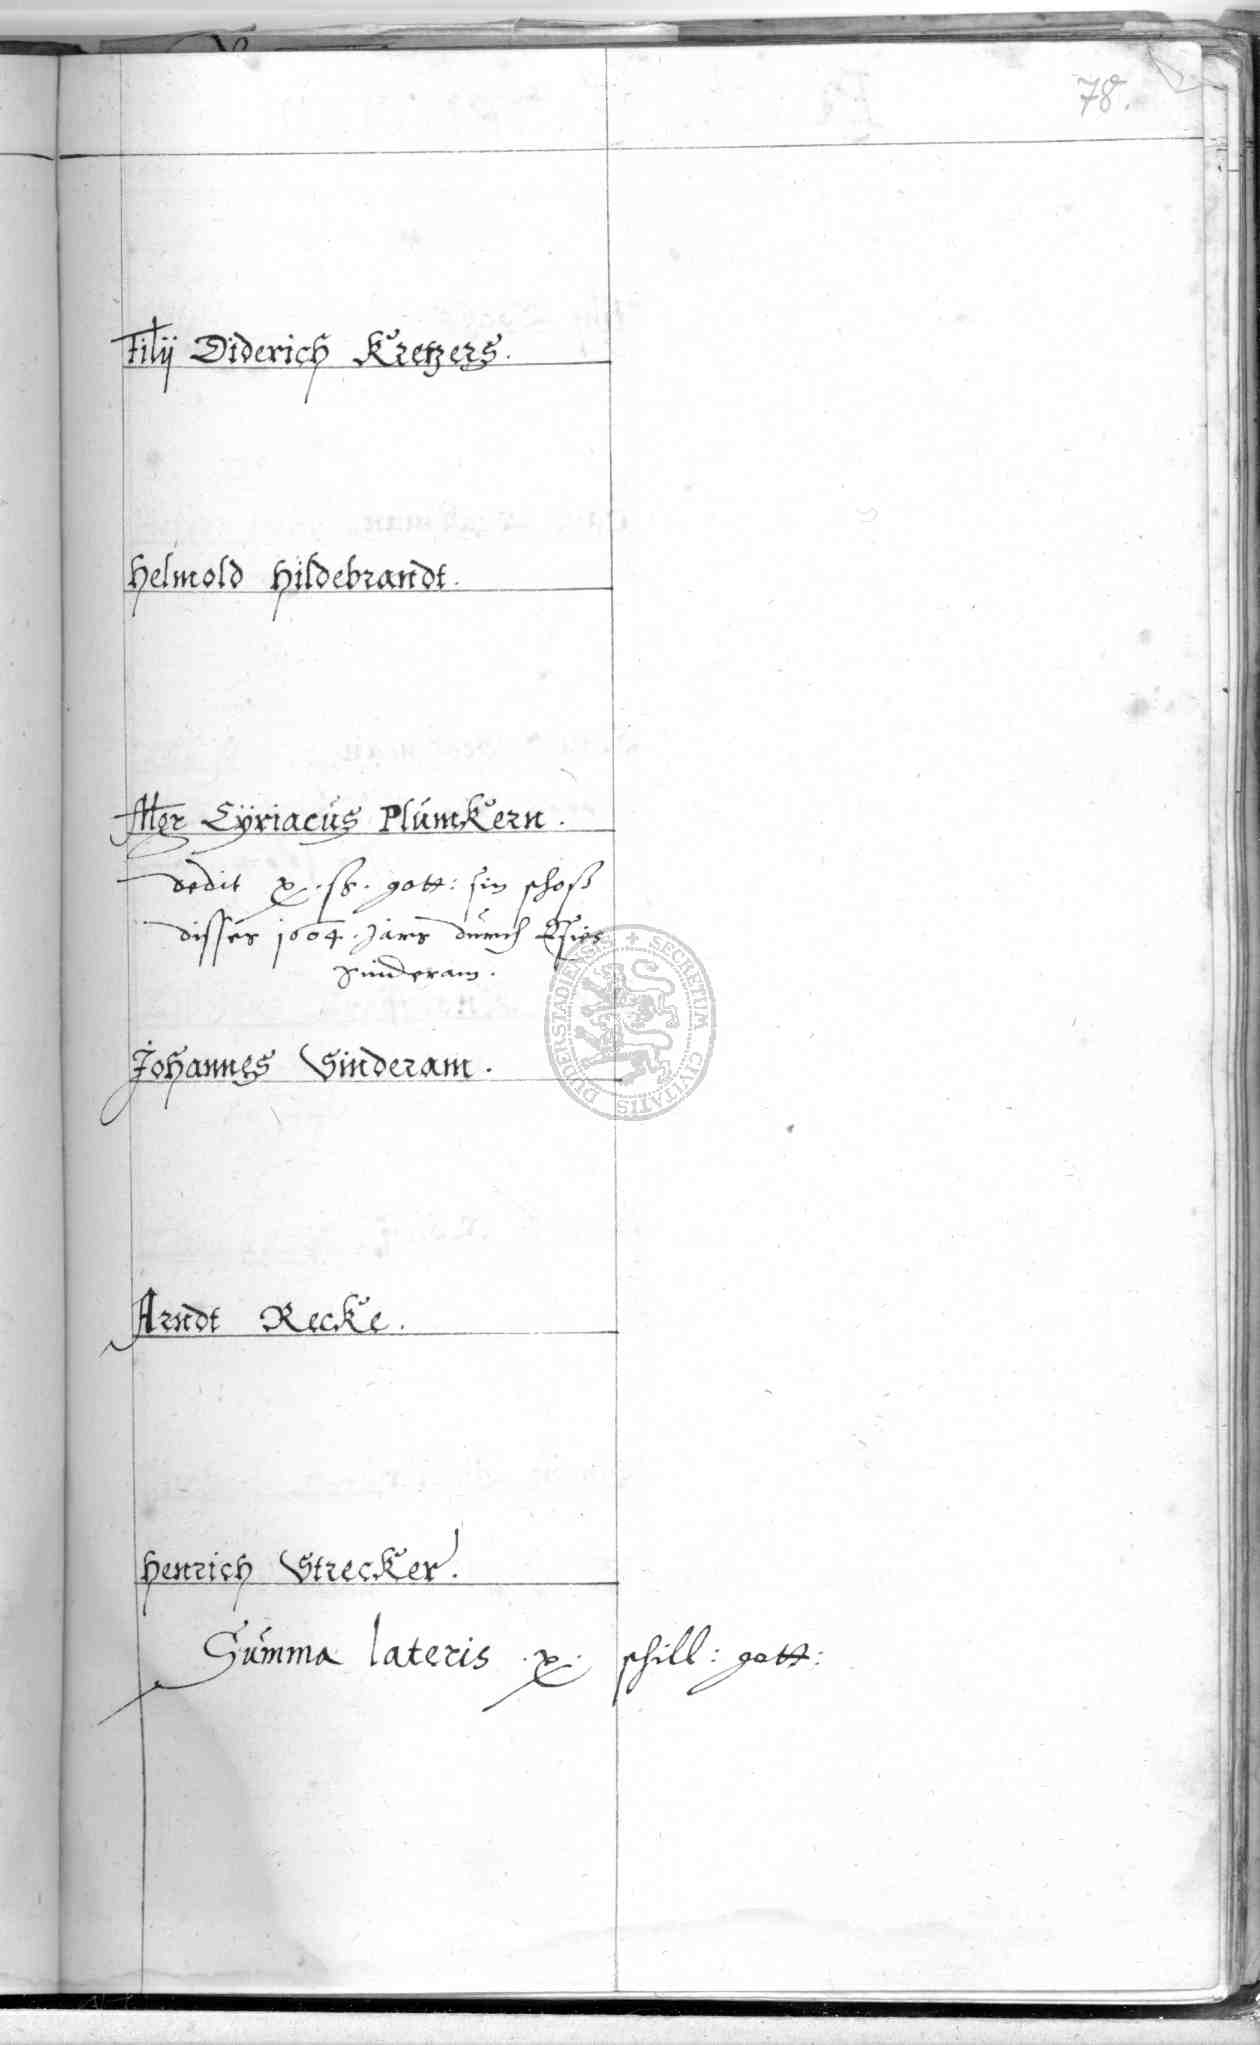 78.
Filij Diderich Kretzers.
Helmold Hildebrandt.
Mgr Cÿriacus Plumkern.
dedit x. ß. gott: sin schoß
disses 1604. Jars durch
Sinderam.
Johannes Sinderam.
Arndt Recke.
Henrich Strecker.
Summa lateris x. schill: gott:
SECRETUM CIVITATIS DUDERSTADIENSIS